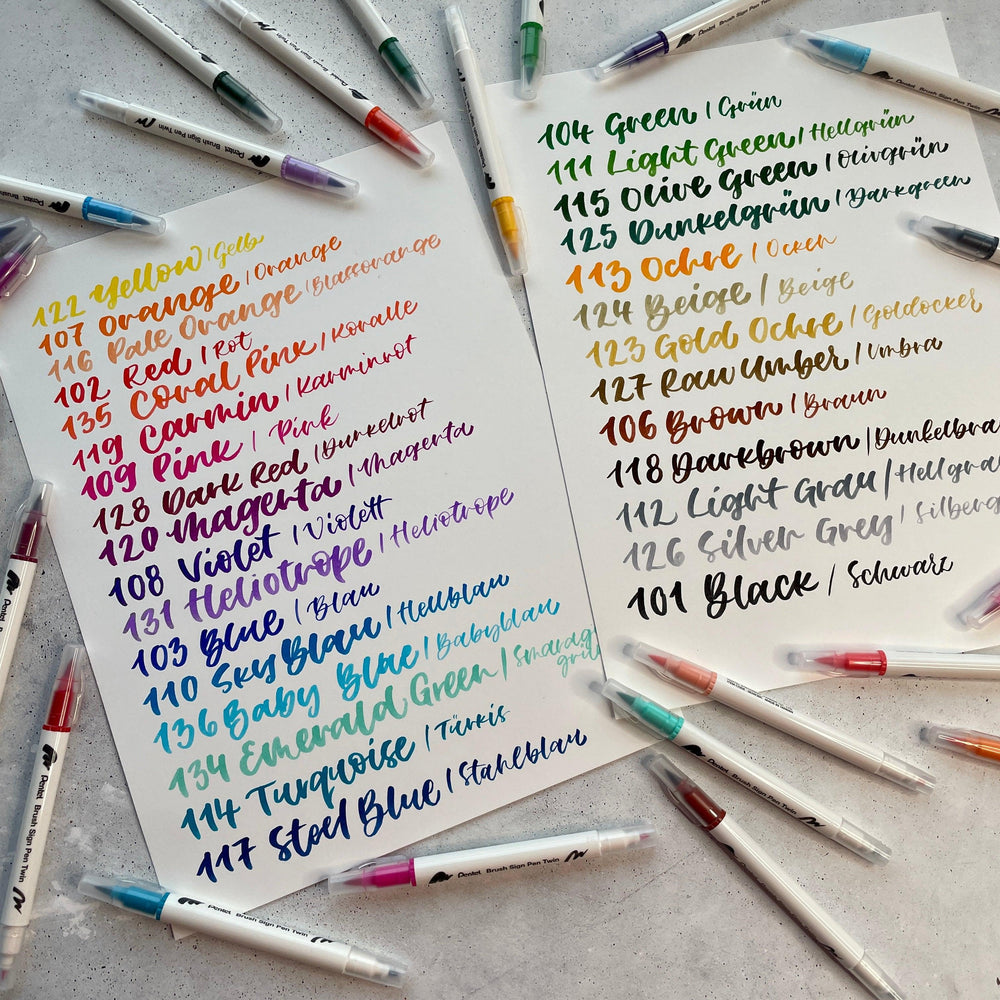 122 Yellow | Gelb
107 Orange | Orange
116 Pale Orange | Blassorange
102 Red | Rot
135 Coral Pink | Koralle
119 Carmin | Karminrot
109 Pink | Pink
128 Dark Red | Dunkelrot
120 Magenta | Magenta
108 Violet | Violett
131 Heliotrope | Heliotrope
103 Blue | Blau
110 Sky Blau | Hellblau
136 Baby Blue | Babyblau
134 Emerald Green | Smaragd
grün
114 Turquoise | Türkis
117 Steel Blue | Stahlblau
104 Green | Grün
111 Light Green | Hellgrün
115 Olive Green | Olivgrün
125 Dunkelgrün | Darkgreen
113 Ochre | Ocker
124 Beige | Beige
123 Gold Ochre | Goldocker
127 Raw Umber | Umbra
106 Brown | Braun
118 Darkbrown | Dunkelbra
112 Light Gray | Hellgra
126 Silver Grey | Silberg
101 Black / Schwarz
Pentel Brush Sign Pen Twin
Pentel Brush Sign Pen Twin
Pentel Brush Sign Pen Twin
Pentel Brush Sign Pen Twin